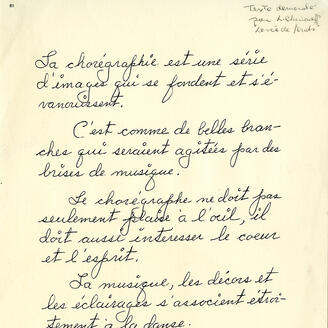 Texte demandé
par
La chorégraphie est une série
d'images qui se fondent et s'é-
vanouissent.
C'est comme de belles bran-
ches qui seraient agitées par des
brises de musique.
Le chorégraphe ne doit pas
seulement plaise à l'œil, il
doit aussi intéresser le coeur
et l'esprit.
La musique, les décors et
les éclairages s'associent étroi-
tement à la danse.